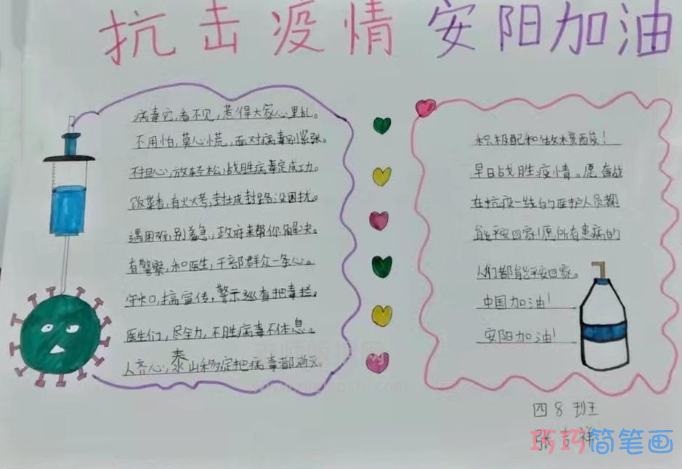 抗击疫情 安阳加油
病毒它,看不见,惹得大家心里乱。
不用怕,莫心慌,面对病毒别紧张。
不担心,放轻松,战胜病毒定成功。
遇困难,别着急,政府来帮你解决。
有警察,和医生,干部群众一条心。
守卡口,搞宣传,警示巡逻把毒拦。
医生们,尽全力,不胜病毒不休息。
人齐心,泰山移,定把病毒都消灭
积极配和做核
早日战胜疫情。愿奋战
在抗疫一线的医护人员都
能平安回家!愿所有患病的
人们都能平安回家。
中国加油!
安阳加油!
四8班
张吉祥
巧巧简笔画